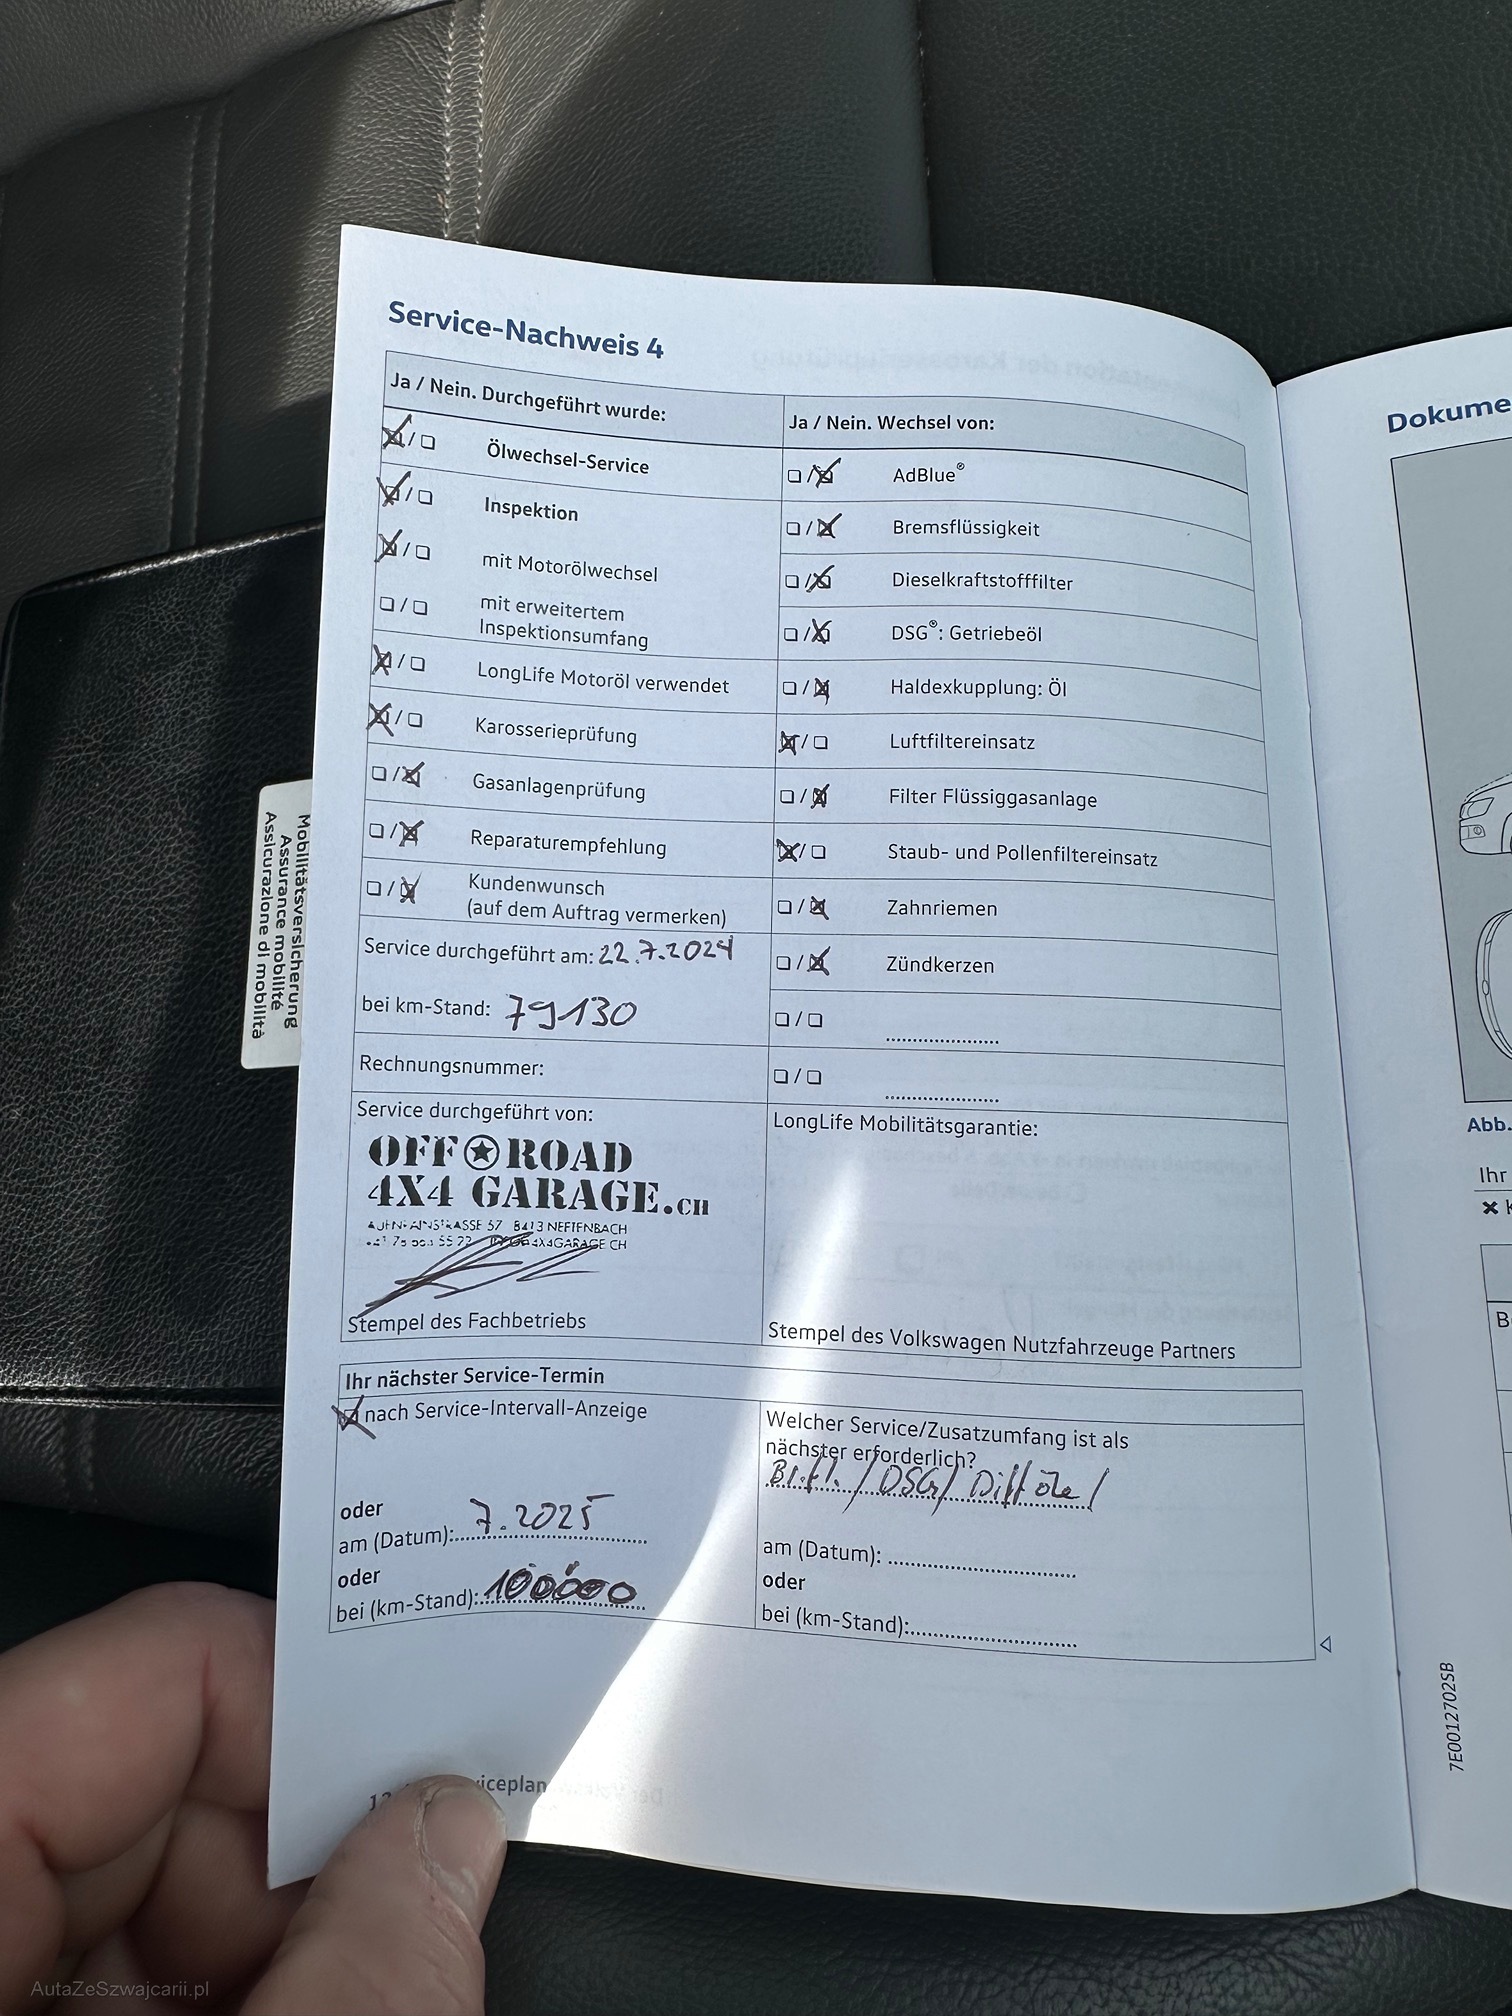 Service-Nachweis 4
Ja / Nein. Durchgeführt wurde:
Ölwechsel-Service
Inspektion
mit Motorölwechsel
mit erweitertem
Inspektionsumfang
LongLife Motoröl verwendet
Karosserieprüfung
Gasanlagenprüfung
Reparaturempfehlung
Kundenwunsch
(auf dem Auftrag vermerken)
Service durchgeführt am: 22.7.2024
bei km-Stand: 79130
Rechnungsnummer:
Service durchgeführt von:
OFF ROAD
4X4 GARAGE.CH
57 8413 NEFTENBACH
4X4GARAGE CH
Stempel des Fachbetriebs
Ja / Nein. Wechsel von:
AdBlue®
Bremsflüssigkeit
Dieselkraftstofffilter
DSG®: Getriebeöl
Haldexkupplung: Öl
Luftfiltereinsatz
Filter Flüssiggasanlage
Staub- und Pollenfiltereinsatz
Zahnriemen
Zündkerzen
LongLife Mobilitätsgarantie:
Stempel des Volkswagen Nutzfahrzeuge Partners
Ihr nächster Service-Termin
nach Service-Intervall-Anzeige
oder
am (Datum): 7.2025
oder
bei (km-Stand): 100000
Welcher Service/Zusatzumfang ist als
nächster erforderlich?
Br.fl. / DSG / Diff öle /
am (Datum):
oder
bei (km-Stand):
Mobilitätsversicherung
Assurance mobilité
Assicurazione di mobilità
Abb.
Ihr
7E0012702SB
AutaZeSzwajcarii.pl